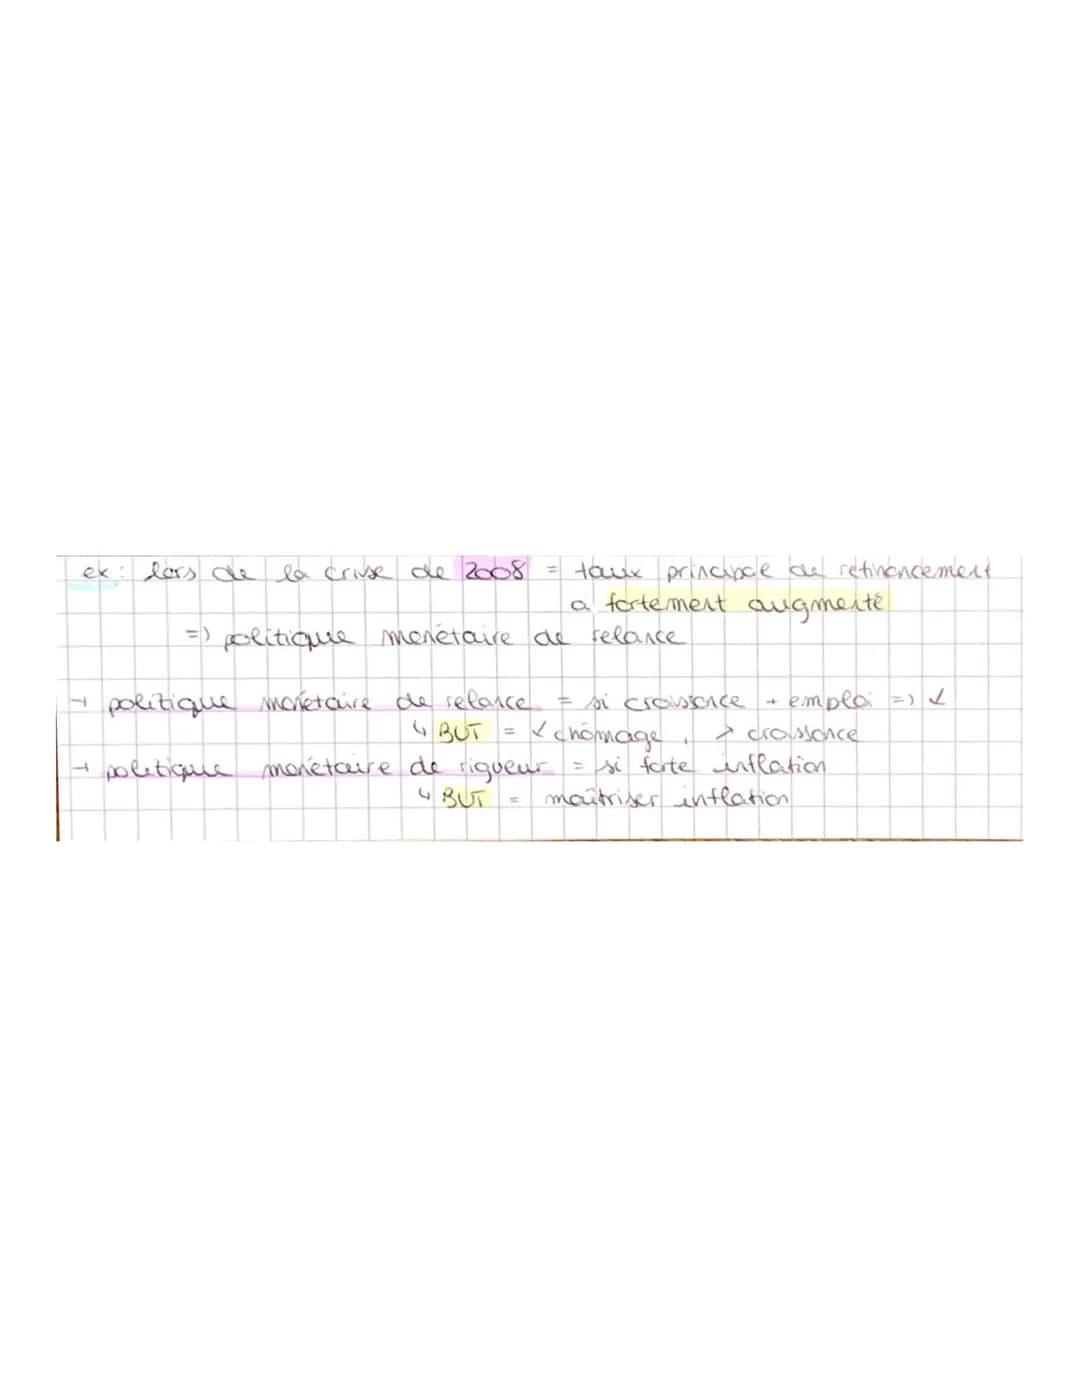 ex : lors de la crise de 2008 = taux principale de refinancement
a fortement augmenté
=> politique monétaire de relance
→ politique monétaire de relance = si croissance + emploi => ↙
↳ BUT = ↙ chômage, ↗ croissance
→ politique monétaire de rigueur = si forte inflation
↳ BUT = maîtriser inflation